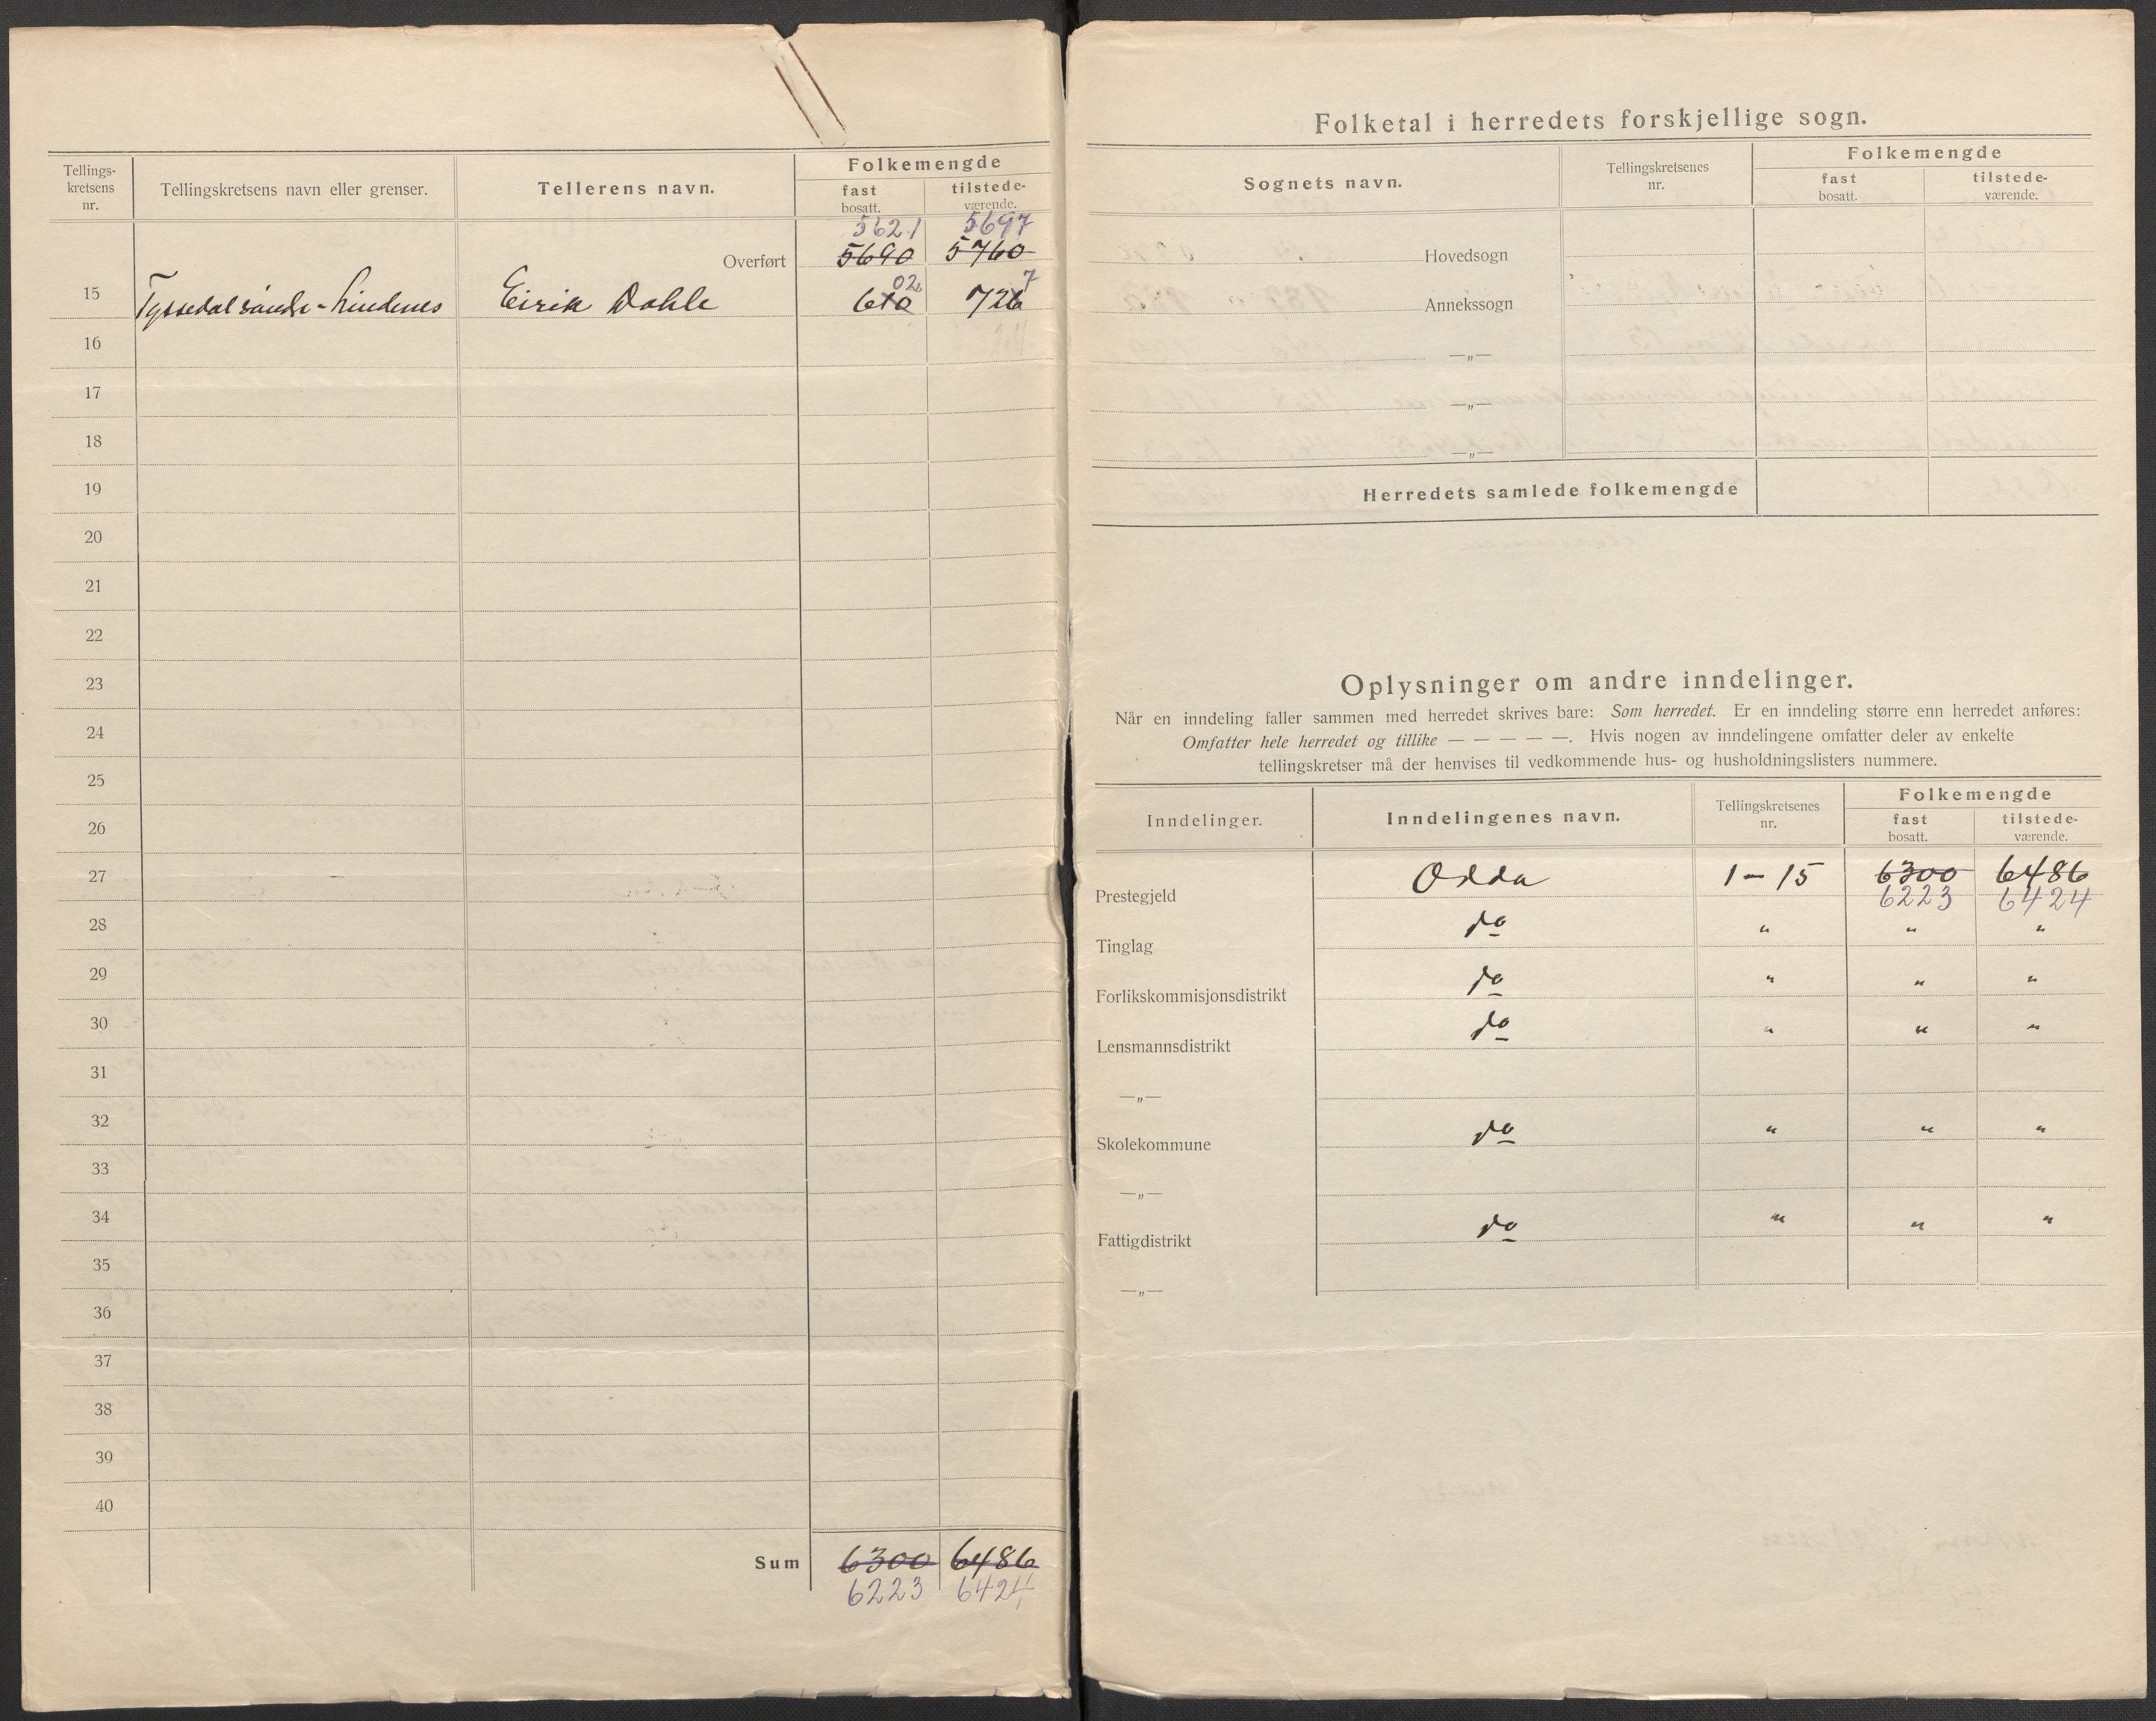 Tellings-
kretsens
nr.
Tellingskretsens navn eller grenser.
Tellerens navn.
Folkemengde
fast
bosatt.
tilstede-
værende.
5621 5697
Overført 5690 5760
02 7
15 Eirik Dahle 610 726
16
17
18
19
20
21
22
23
24
25
26
27
28
29
30
31
32
33
34
35
36
37
38
39
40
Sum 6300 6486
6223 6424
Folketal i herredets forskjellige sogn.
Sognets navn.
Tellingskretsenes
nr.
Folkemengde
fast
bosatt.
tilstede-
værende.
Hovedsogn
Annekssogn
—„—
—„—
—„—
Herredets samlede folkemengde
Oplysninger om andre inndelinger.
Når en inndeling faller sammen med herredet skrives bare: Som herredet. Er en inndeling større enn herredet anføres:
Omfatter hele herredet og tillike — — — — —. Hvis nogen av inndelingene omfatter deler av enkelte
tellingskretser må der henvises til vedkommende hus- og husholdningslisters nummere.
Inndelinger.
Inndelingenes navn.
Tellingskretsenes
nr.
Folkemengde
fast
bosatt.
tilstede-
værende.
Prestegjeld Odda 1-15 6300 6486
6223 6424
Tinglag do " " "
Forlikskommisjonsdistrikt do " " "
Lensmannsdistrikt do " " "
—„—
Skolekommune do " " "
—„—
Fattigdistrikt do " " "
—„—